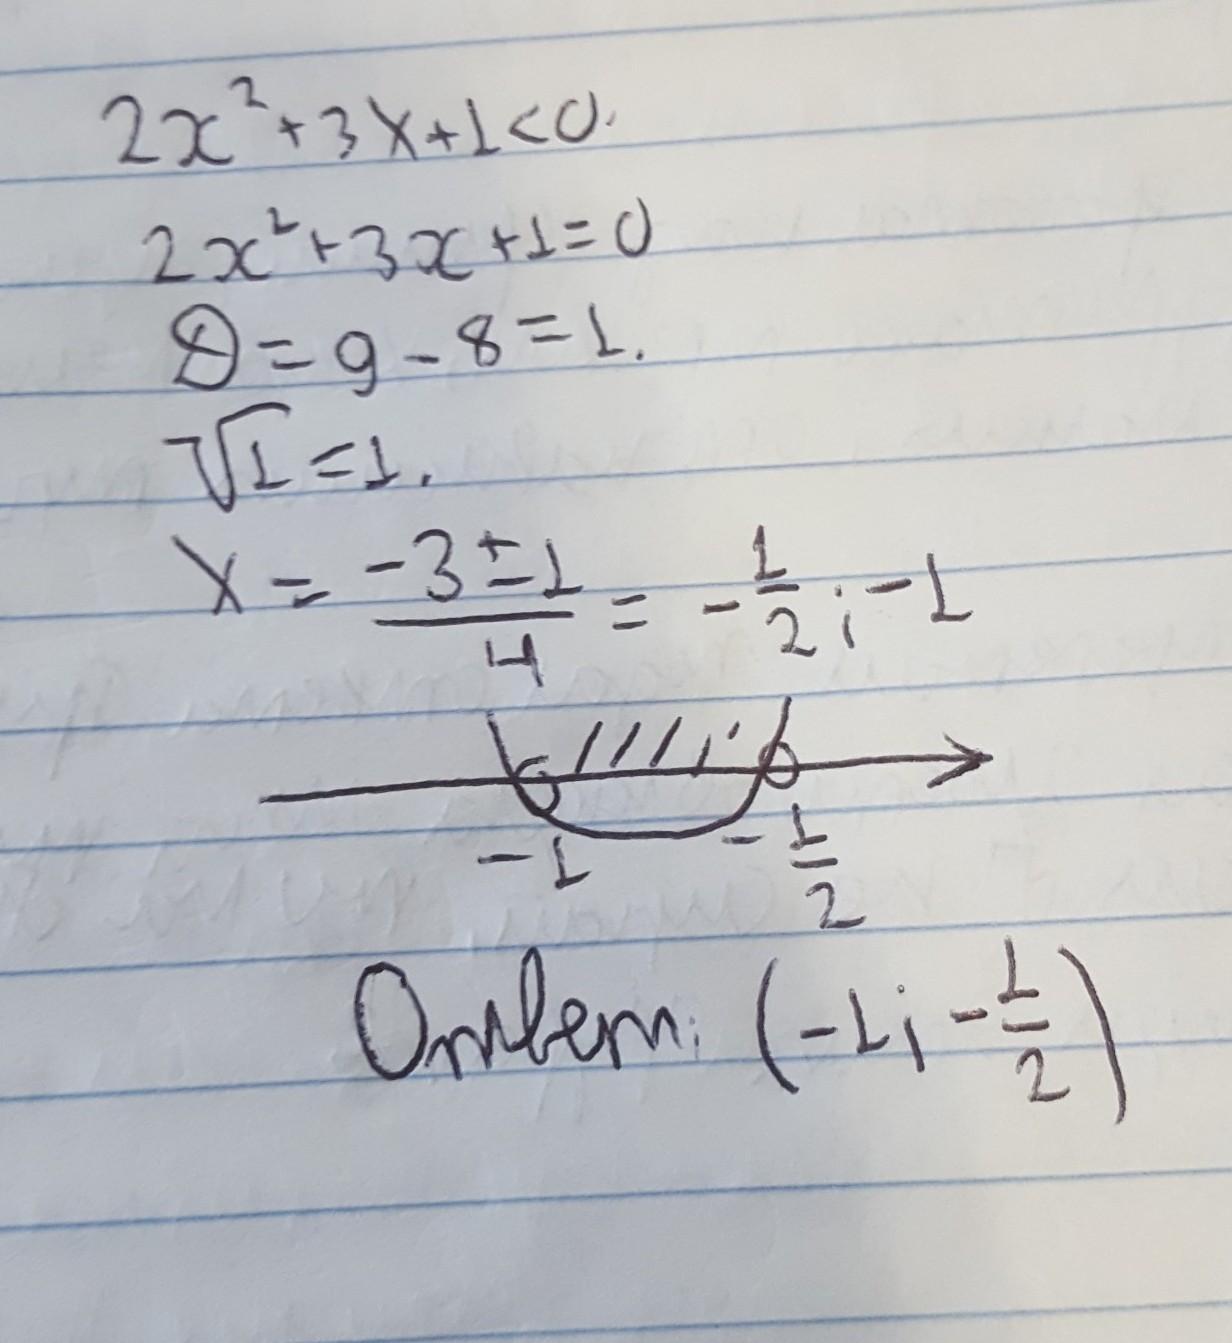 2x² + 3x + 1 < 0.
2x² + 3x + 1 = 0
D = 9 - 8 = 1.
√1 = 1.
x = (-3 ± 1)/4 = -1/2 ; -1
-1 -1/2
Ответ: (-1; -1/2)